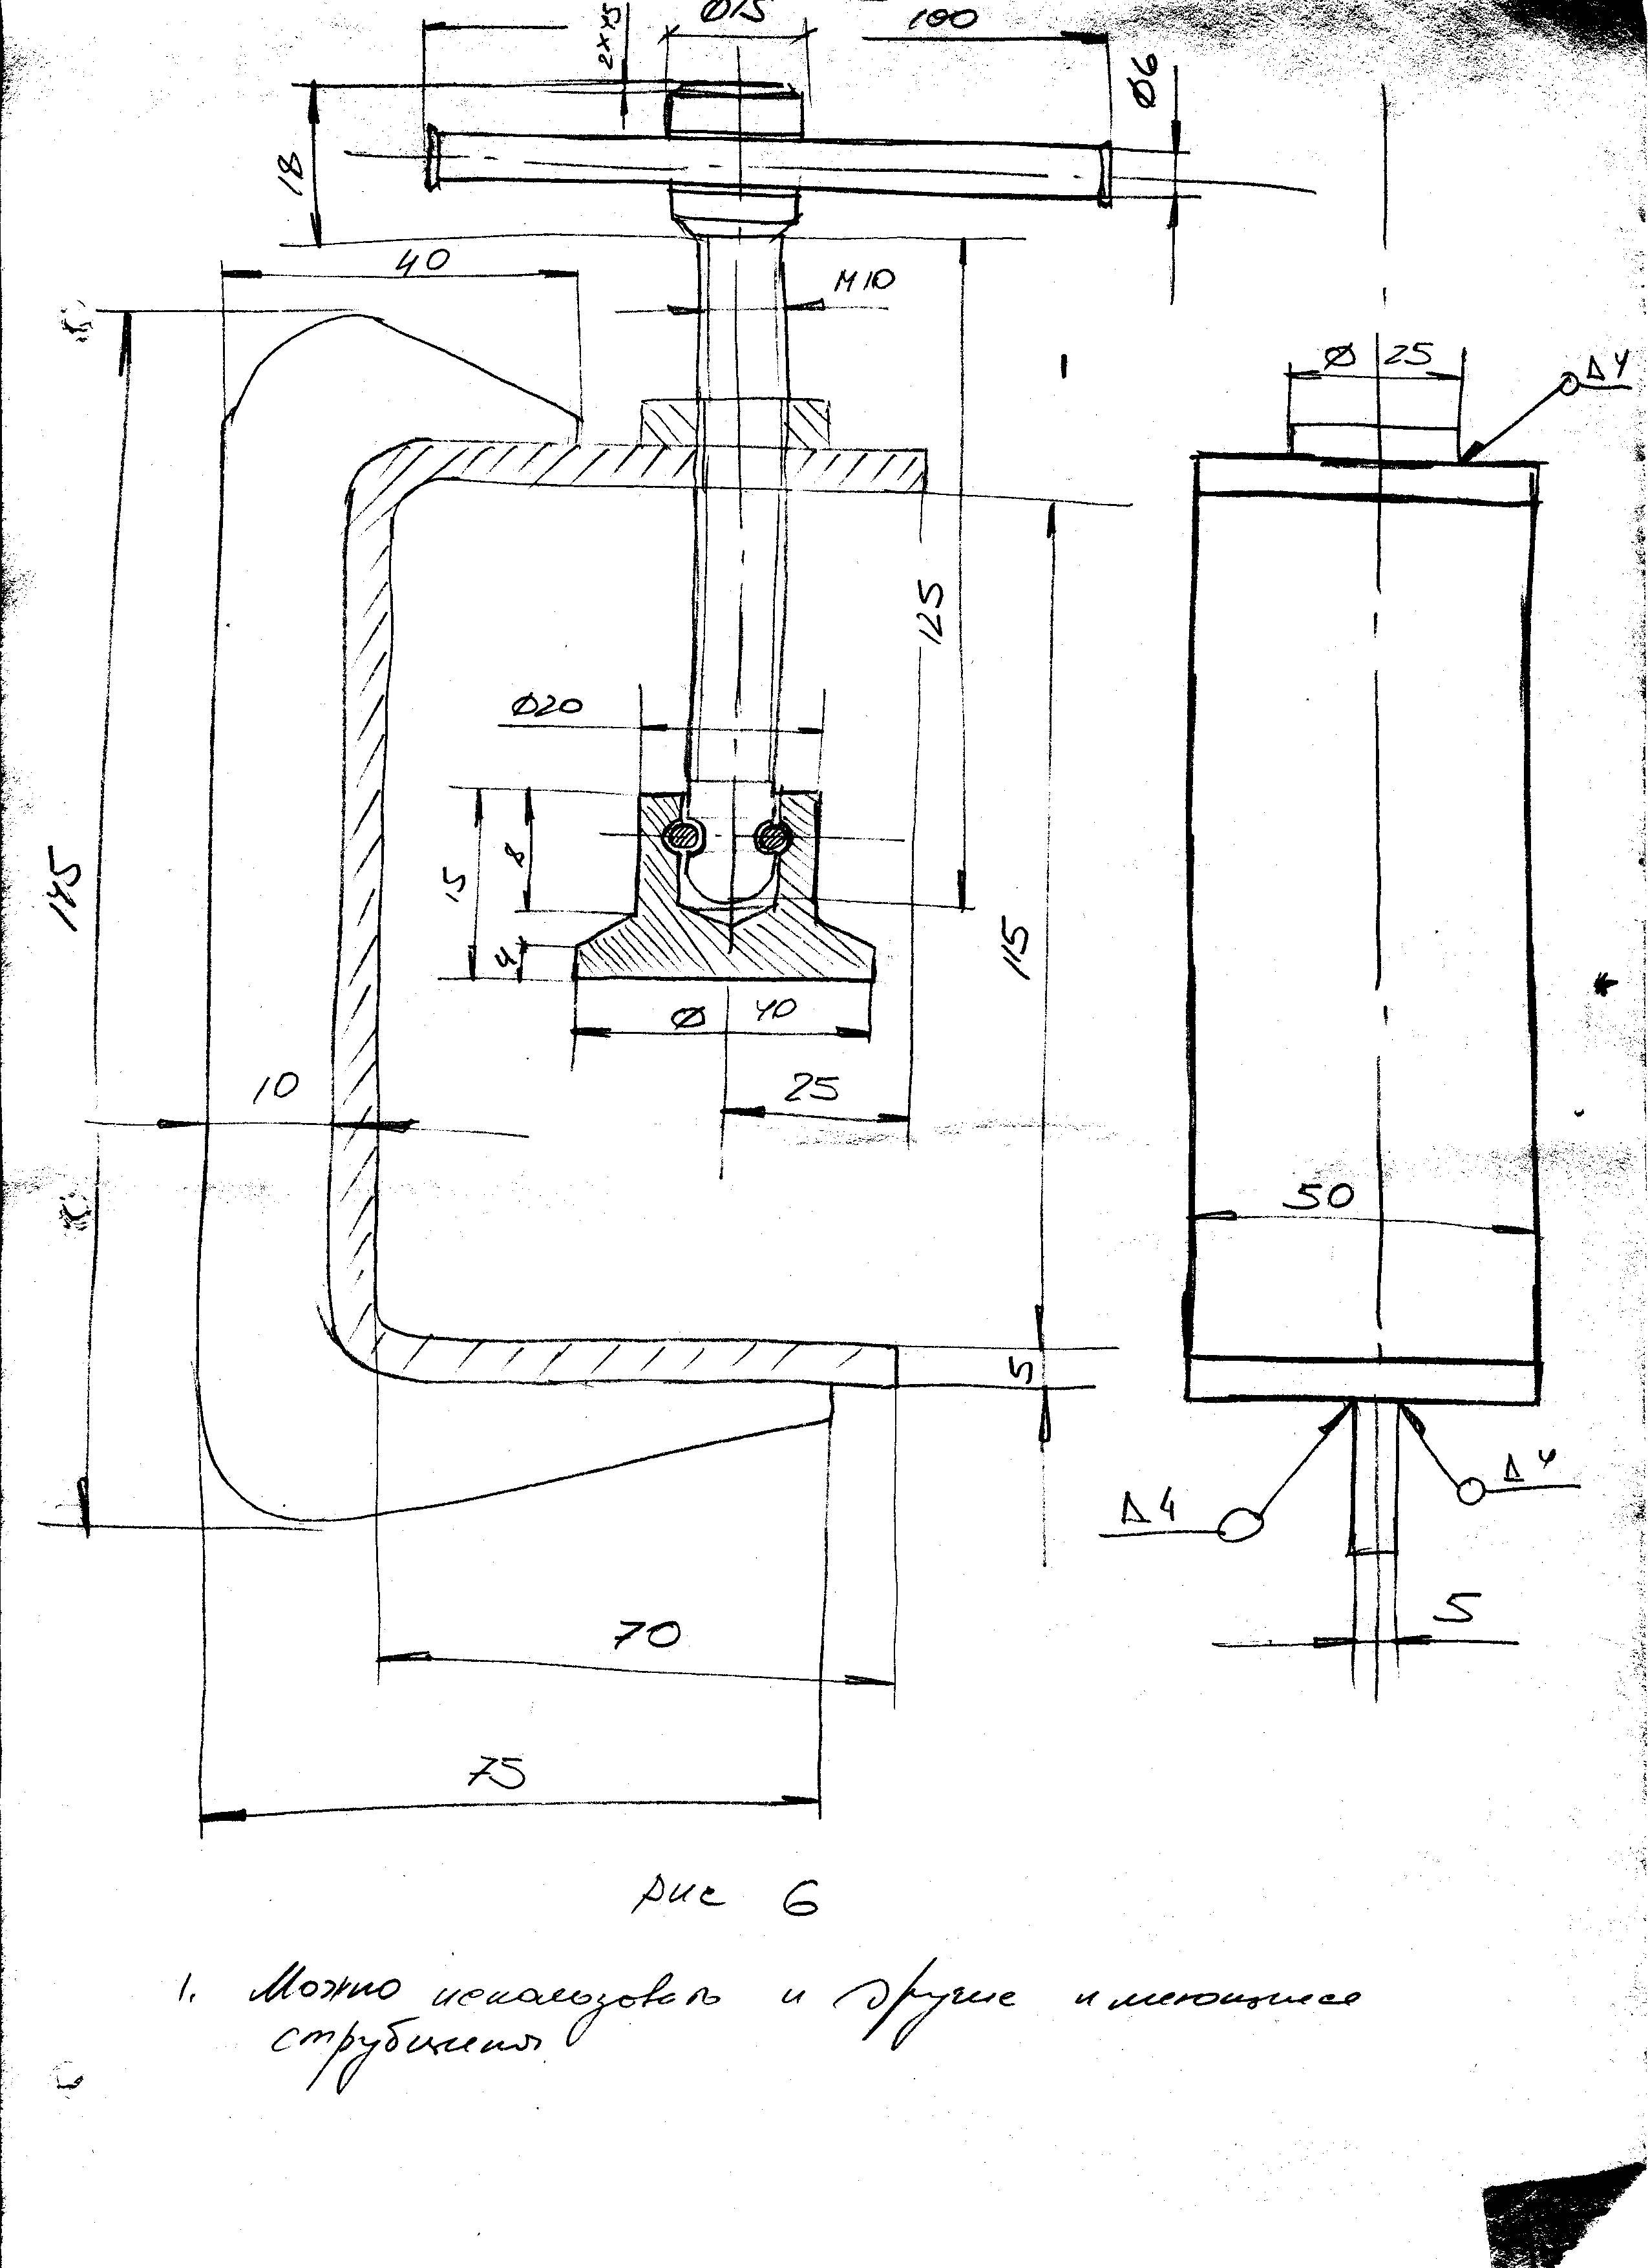 2x45
Ø15
100
Ø6
18
40
M10
Ø 25
Δ4
125
Ø20
145
15
8
4
115
Ø 40
25
10
50
5
Δ4
Δ4
5
70
75
рис 6
1. Можно использовать и другие имеющиеся
струбцины